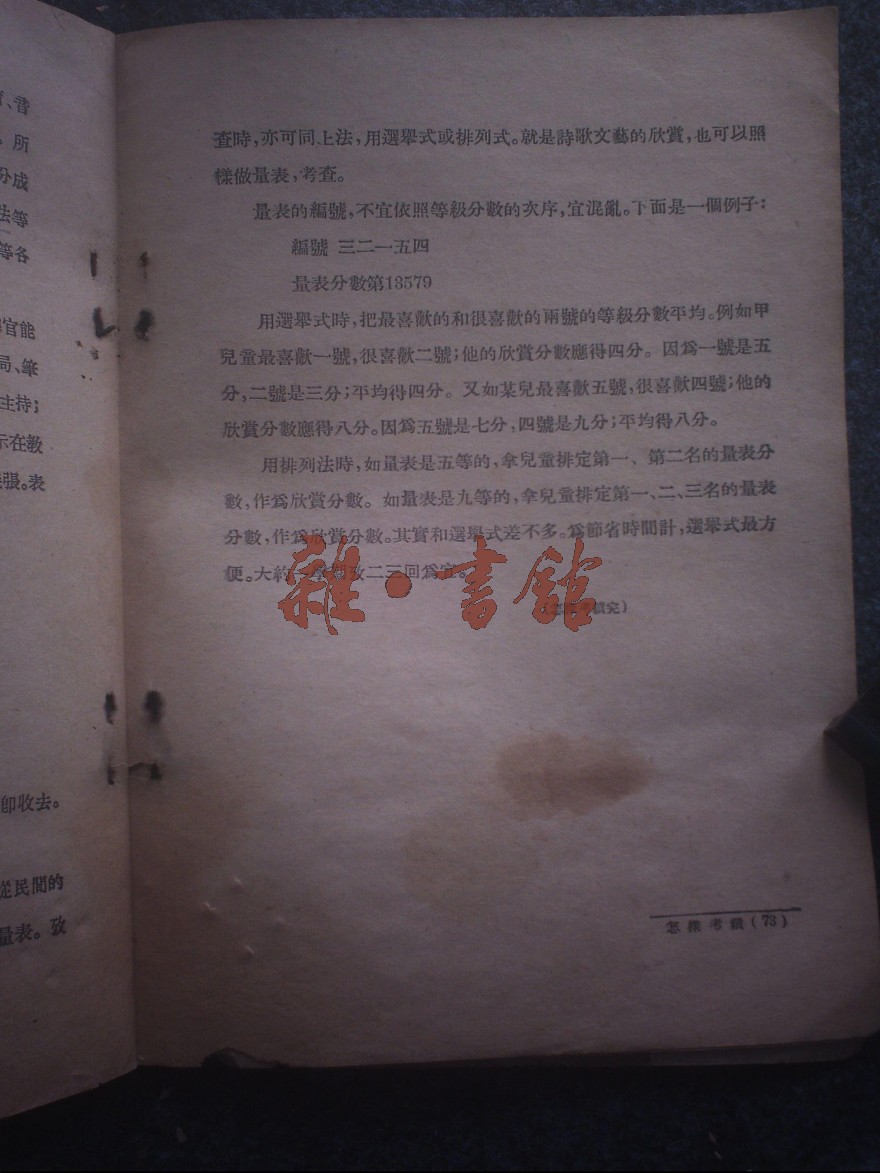 、昔
所
分成
法等
等各
官能
局、筆
主持；
示在敎
張。表
卽收去。
從民間的
量表。攷
查時，亦可同上法，用選舉式或排列式。就是詩歌文藝的欣賞，也可以照
樣做量表，考查。
量表的編號，不宜依照等級分數的次序，宜混亂。下面是一個例子：
編號 三二一五四
量表分數第13579
用選舉式時，把最喜歡的和很喜歡的兩號的等級分數平均。例如甲
兒童最喜歡一號，很喜歡二號；他的欣賞分數應得四分。因爲一號是五
分，二號是三分；平均得四分。又如某兒最喜歡五號，很喜歡四號；他的
欣賞分數應得八分。因爲五號是七分，四號是九分；平均得八分。
用排列法時，如量表是五等的，拿兒童排定第一、第二名的量表分
數，作爲欣賞分數。如量表是九等的，拿兒童排定第一、二、三名的量表
分數，作爲欣賞分數。其實和選舉式差不多。爲節省時間計，選舉式最方
便。大約一學期攷二三回爲宜。
雜·書館
（怎樣考績完）
怎樣考績（73）